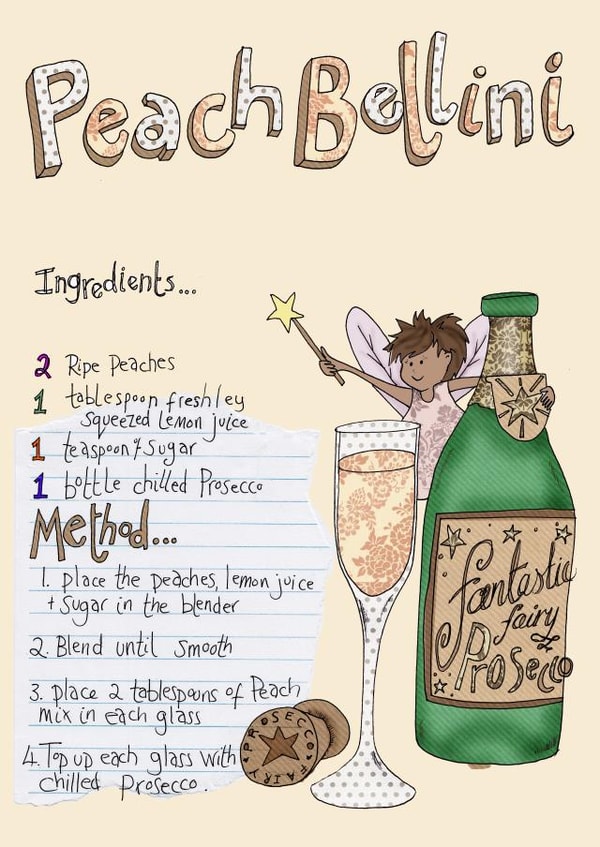 Peach Bellini
Ingredients...
2 Ripe Peaches
1 tablespoon freshley
squeezed lemon juice
1 teaspoon of Sugar
1 bottle chilled Prosecco
Method...
1. place the peaches, lemon juice
+ Sugar in the blender
2. Blend until smooth
3. place 2 tablespouns of Peach
mix in each glass
4. Top up each glass with
chilled Prosecco.
PROSECCO
FAIRY
fantastic
fairy
Prosecco